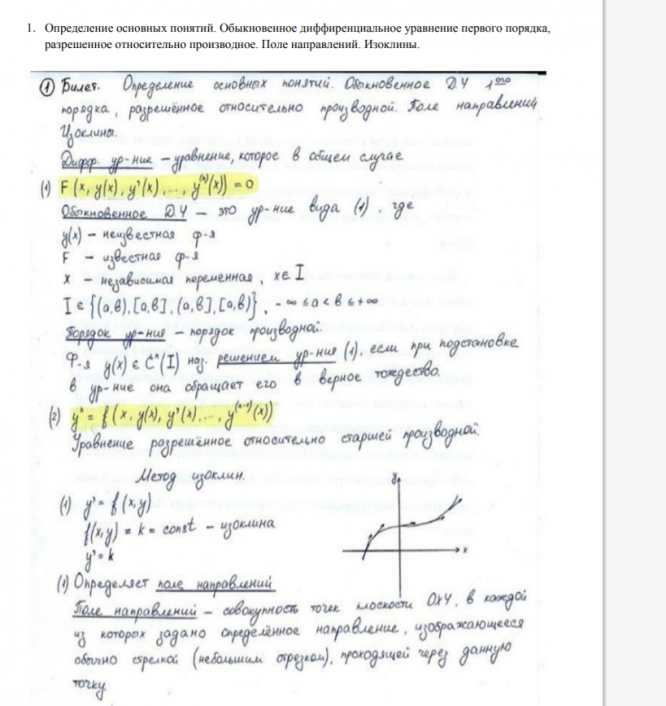 1. Определение основных понятий. Обыкновенное диффиренциальное уравнение первого порядка,
разрешенное относительно производное. Поле направлений. Изоклины.
① Билет. Определение основных понятий. Обыкновенное Д.У 1ого
порядка, разрешённое относительно производной. Поле направлений
Изоклины.
Дифф. ур-ние – уравнение, которое в общем случае
(1) F(x, y(x), y'(x), ..., y⁽ⁿ⁾(x)) = 0
Обыкновенное Д.У – это ур-ние вида (1), где
y(x) – неизвестная ф-я
F – известная ф-я
x – независимая переменная, x∈I
I ∈ {(a,в), [a,в], (a,в], [a,в)}, -∞ ≤ a < в ≤ +∞
Порядок ур-ния – порядок производной.
Ф-я y(x) ∈ Cⁿ(I) наз. решением ур-ния (1), если при подстановке
в ур-ние она обращает его в верное тождество.
(2) yⁿ = f(x, y(x), y'(x), ..., y⁽ⁿ⁻¹⁾(x))
Уравнение разрешённое относительно старшей производной.
Метод изоклин.
(1) y' = f(x,y)
f(x,y) = k = const – изоклина
y' = k
y
x
(1) Определяет поле направлений
Поле направлений – совокупность точек плоскости OXY, в каждой
из которых задано определённое направление, изображающееся
обычно стрелкой (небольшим отрезком), проходящей через данную
точку